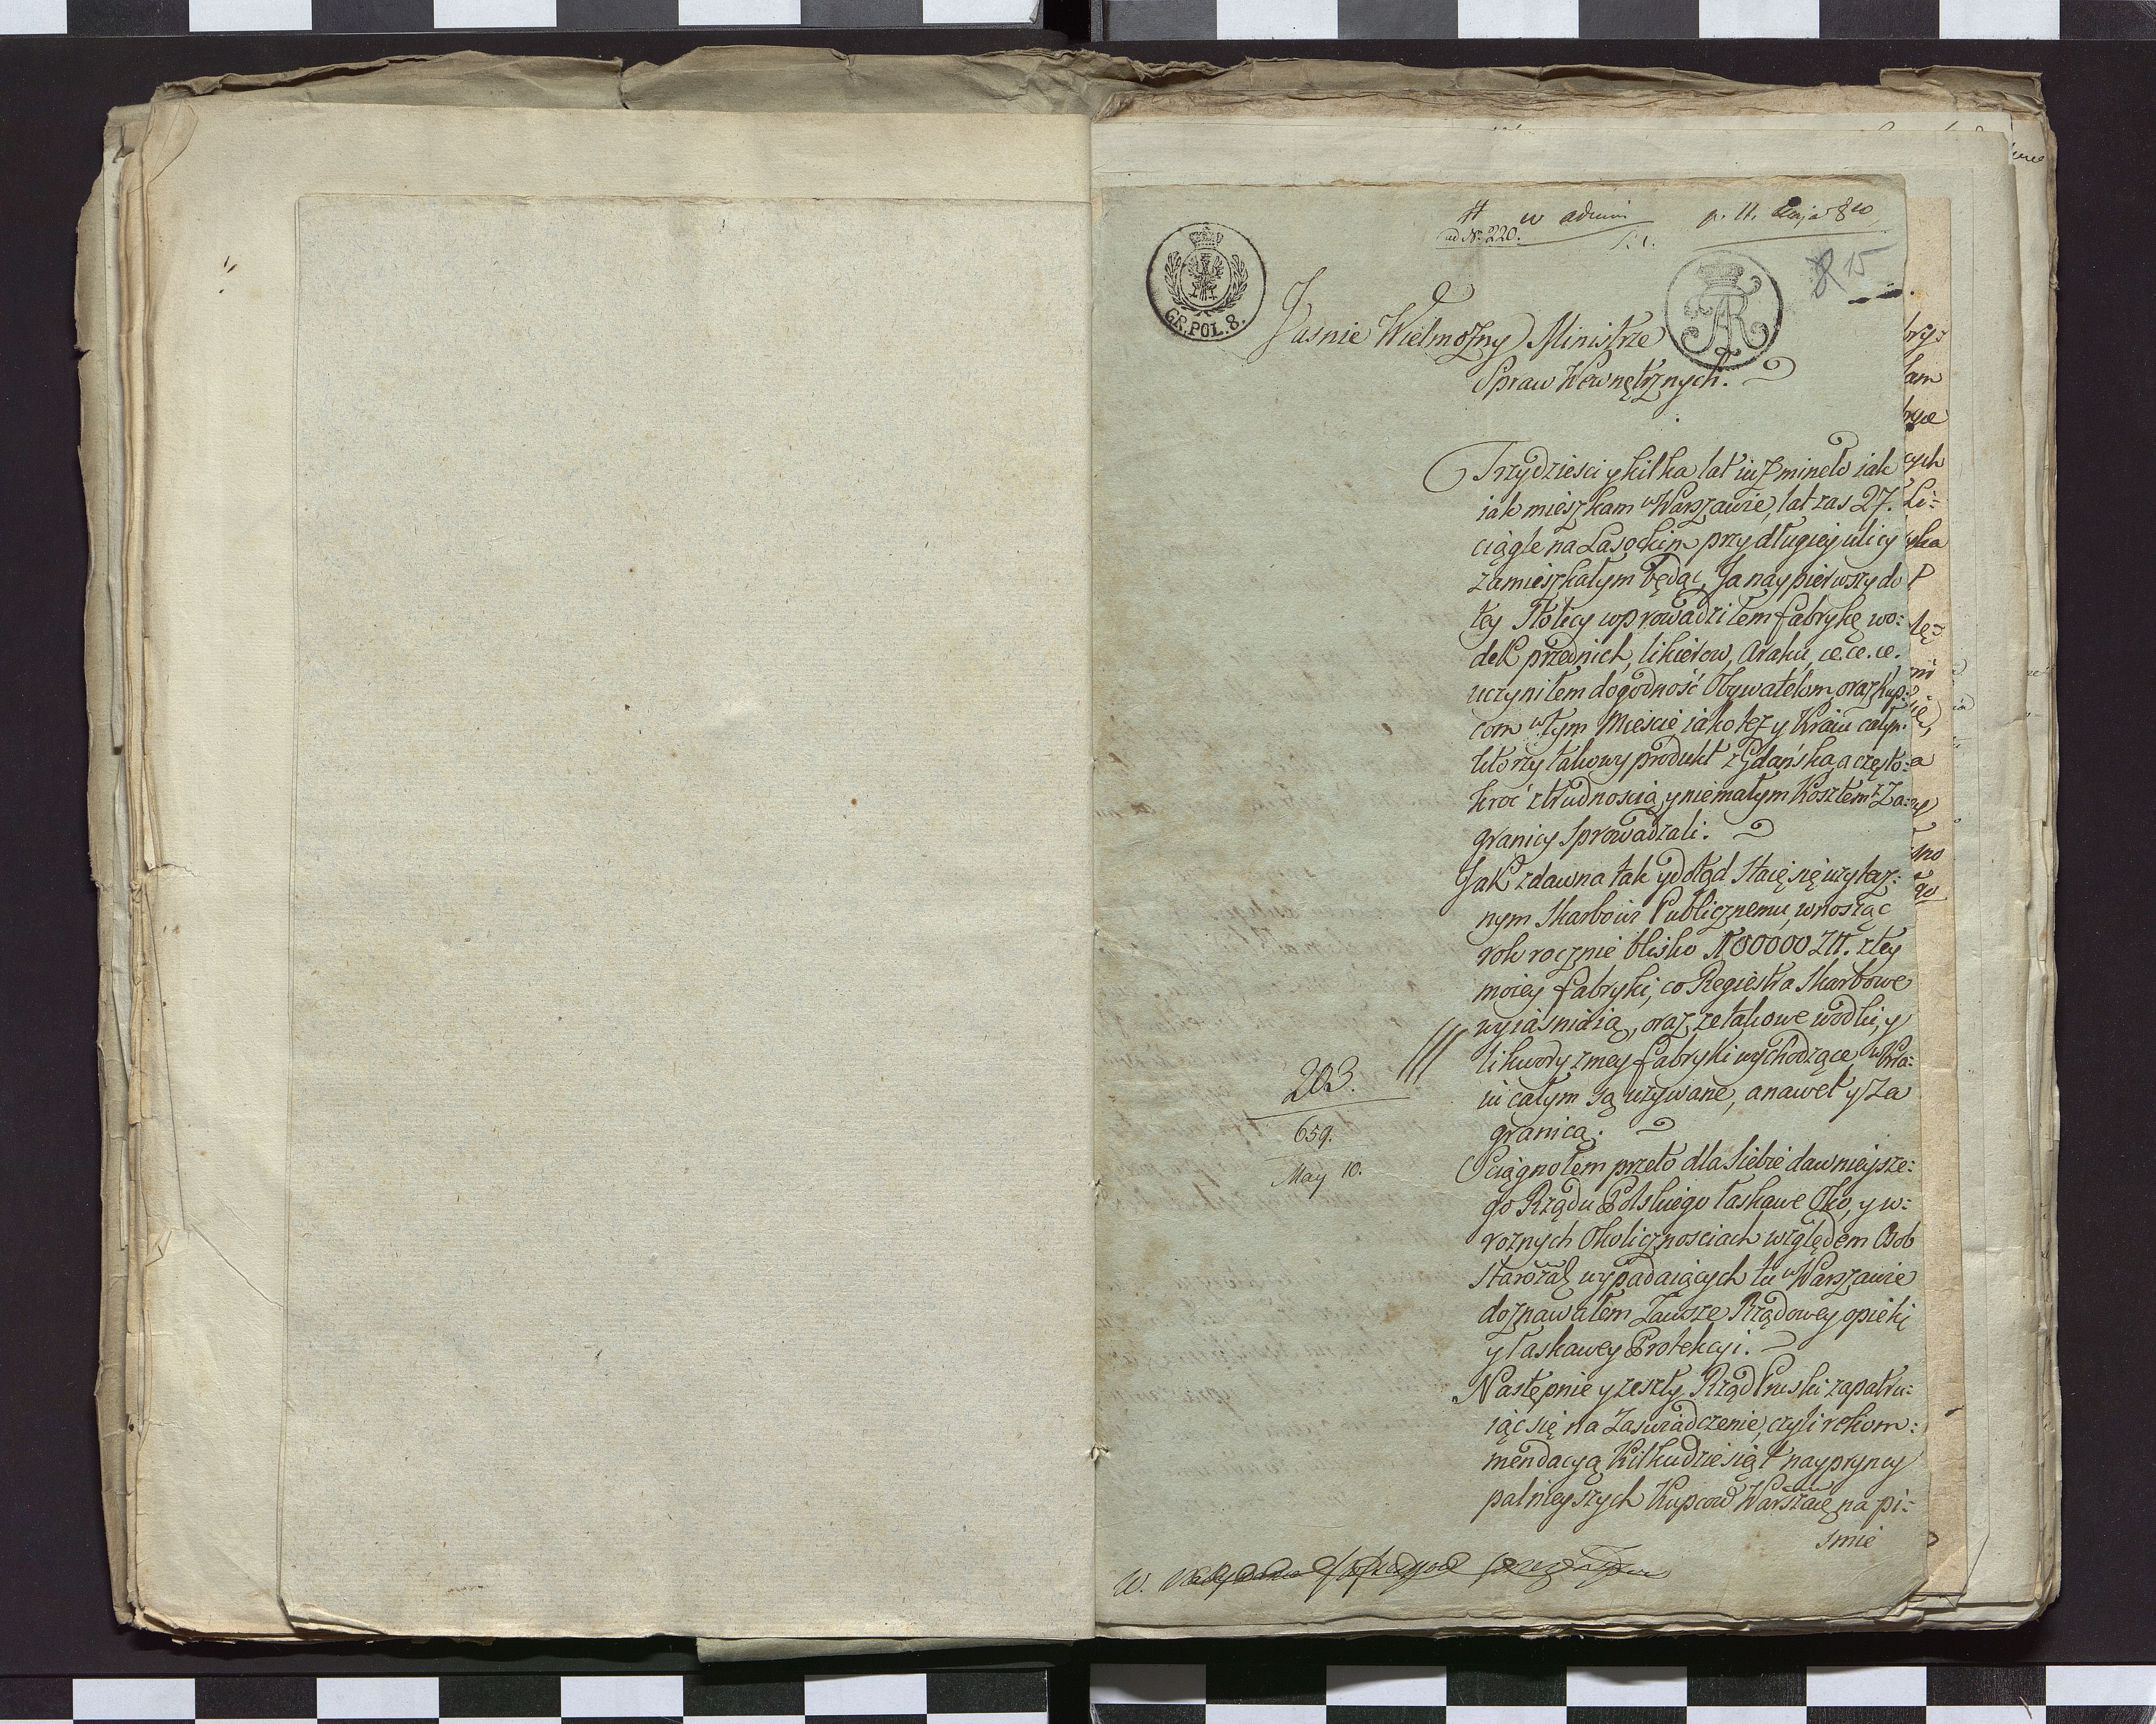 ad Nr. 220.
15
GR. POL. 8.
Jasnie Wielmożny Ministrze
Spraw Wewnętrznych.
Trzydziesci y kilka lat iuż mineło iak
iak mieszkam w Warszawie, lat zas 27.
ciągle na Lasockim przy długiey ulicy
zamieszkałym będąc, Ja naypierwszy do
tey Stolicy wprowadziłem fabrykę wo:
dek przednich, likierow, Araku, &c. &c. &c.
uczyniłem dogodność Obywatelom, oraz kup:
com w tym Mieście iako też y Kraiu całym
ktorzy takowy produkt z Gdańska a często:
kroć z trudnoscią, y niemałym kosztem z Za:
granicy sprowadzali.
Jak z dawna tak y dotąd staię się użytecz:
nym Skarbowi Publicznemu, wnosząc
rok rocznie blisko 100000 Złł. z tey
moiey fabryki, co Regiestra Skarbowe
wyiaśniaią, oraz, ze takowe wodki, y
likwory z mey fabryki wychodzące w Kra:
iu całym są używane, a nawet y za
granicą.
203.
659.
May 10.
Sciągnołem przeto dla siebie dawnieysze:
go Rządu Polskiego łaskawe Oko, y w:
roznych Okolicznosciach względem Osob
Starozak. wypadaiących tu w Warszawie
doznawałem zawsze Rządowey opieki
y łaskawey Protekcyi.
Następnie y zeszły Rząd Pruski zapatru:
iąc się na Zaswiadczenie, czyli rekom:
mendacyą Kilkudziesiąt naypryncy
palnieyszych Kupcow Warszaw. na pi:
smie